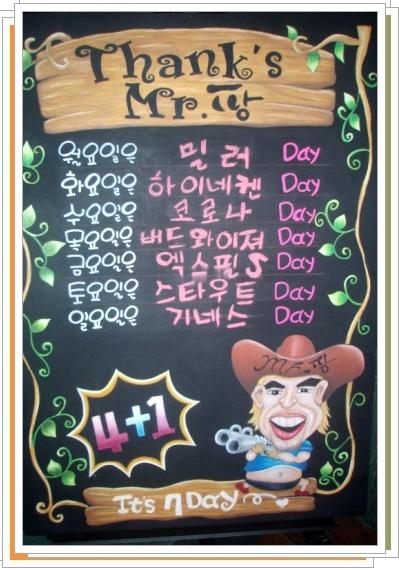 Thank's
Mr.땅
월요일은 밀러 Day
화요일은 하이네켄 Day
수요일은 코로나 Day
목요일은 버드와이져 Day
금요일은 엑스필S Day
토요일은 스타우트 Day
일요일은 기네스 Day
Mr.땅
4+1
It's 7 Day